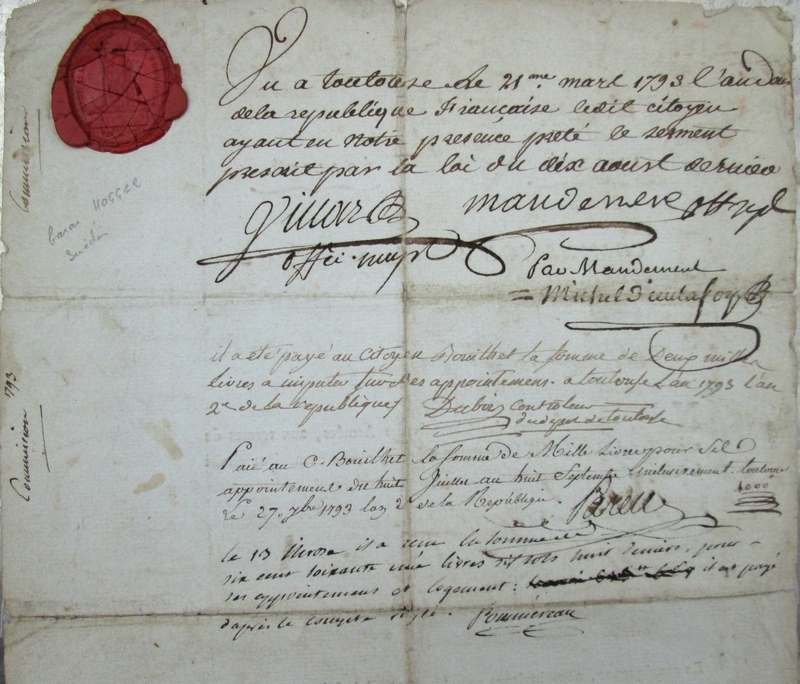 Vu a toulouse le 21me mars 1793 l'an 2me
de la republique Française ledit citoyen
ayant en notre presence preté le serment
prescrit par la loi du dix aoust dernier
offi. mupl
Par Mandement
Commission
baron Hogger
Suède
il a été payé au citoyen Bouilhet la somme de Deux mille
Livres a imputer sur ses appointemens. a toulouse l'an 1793 l'an
2e de la republique Dubois controleur
Commission 1793
Paié au C. Bouilhet la somme de Mille Livres pour ses
appointemens du huit Juillet au huit Septembre inclusivement. toulouse
le 27. 7bre 1793 l'an 2 de la République.
1000
le 13 Nivose il a reçu la somme de
six cent soixante une livres dix sols huit deniers, pour
ses appointemens et logement: il est payé
d'après le compte réglé. Bonnicreau